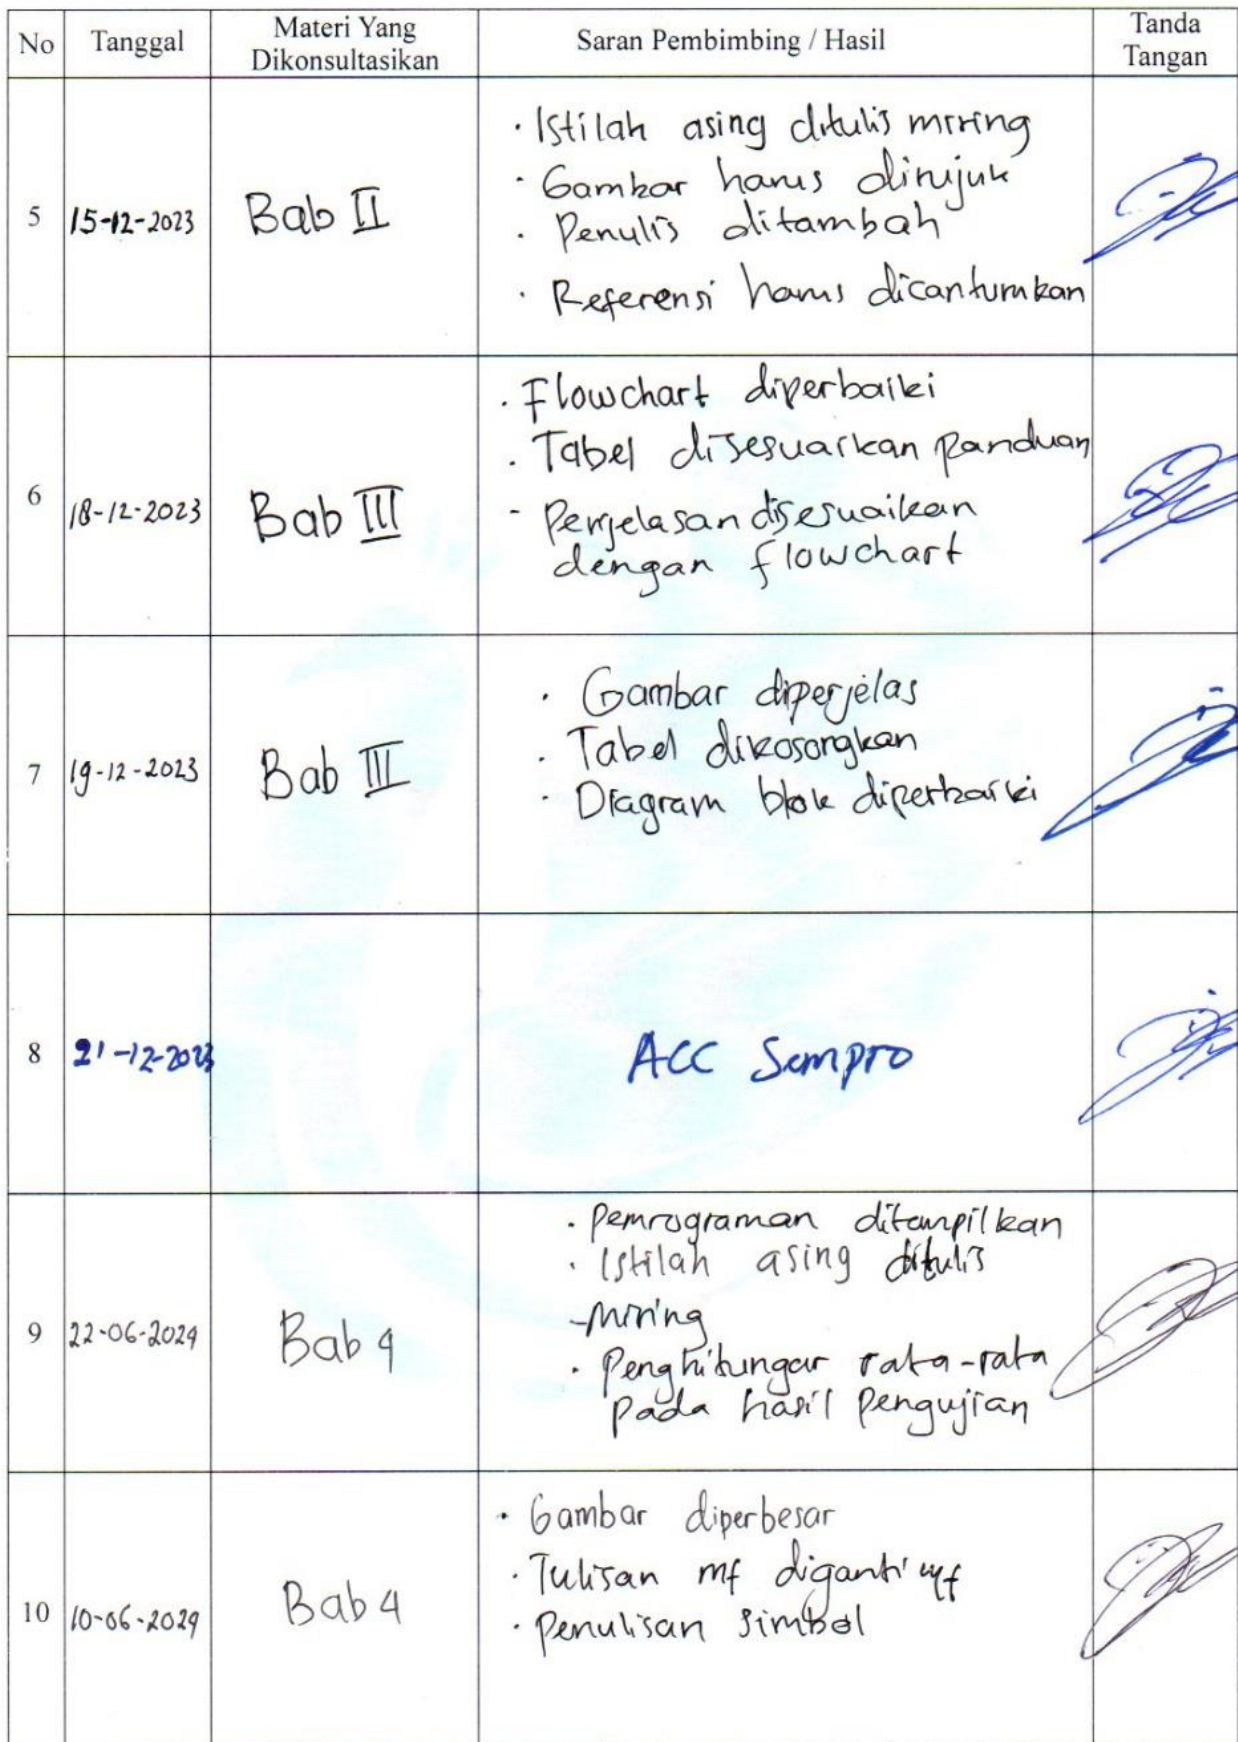 No Tanggal Materi Yang Dikonsultasikan Saran Pembimbing / Hasil Tanda Tangan
5 15-12-2023 Bab II
· Istilah asing ditulis miring
· Gambar harus dirujuk
· Penulis ditambah
· Referensi harus dicantumkan
6 18-12-2023 Bab III
· Flowchart diperbaiki
· Tabel disesuaikan panduan
- Penjelasan disesuaikan
dengan flowchart
7 19-12-2023 Bab III
· Gambar diperjelas
· Tabel dikosongkan
· Diagram blok diperbaiki
8 21-12-2023
ACC Sempro
9 22-06-2024 Bab 4
· Pemrograman ditampilkan
· Istilah asing ditulis
-miring
· Penghitungan rata-rata
pada hasil pengujian
10 10-06-2024 Bab 4
· Gambar diperbesar
· Tulisan mf diganti
· Penulisan simbol